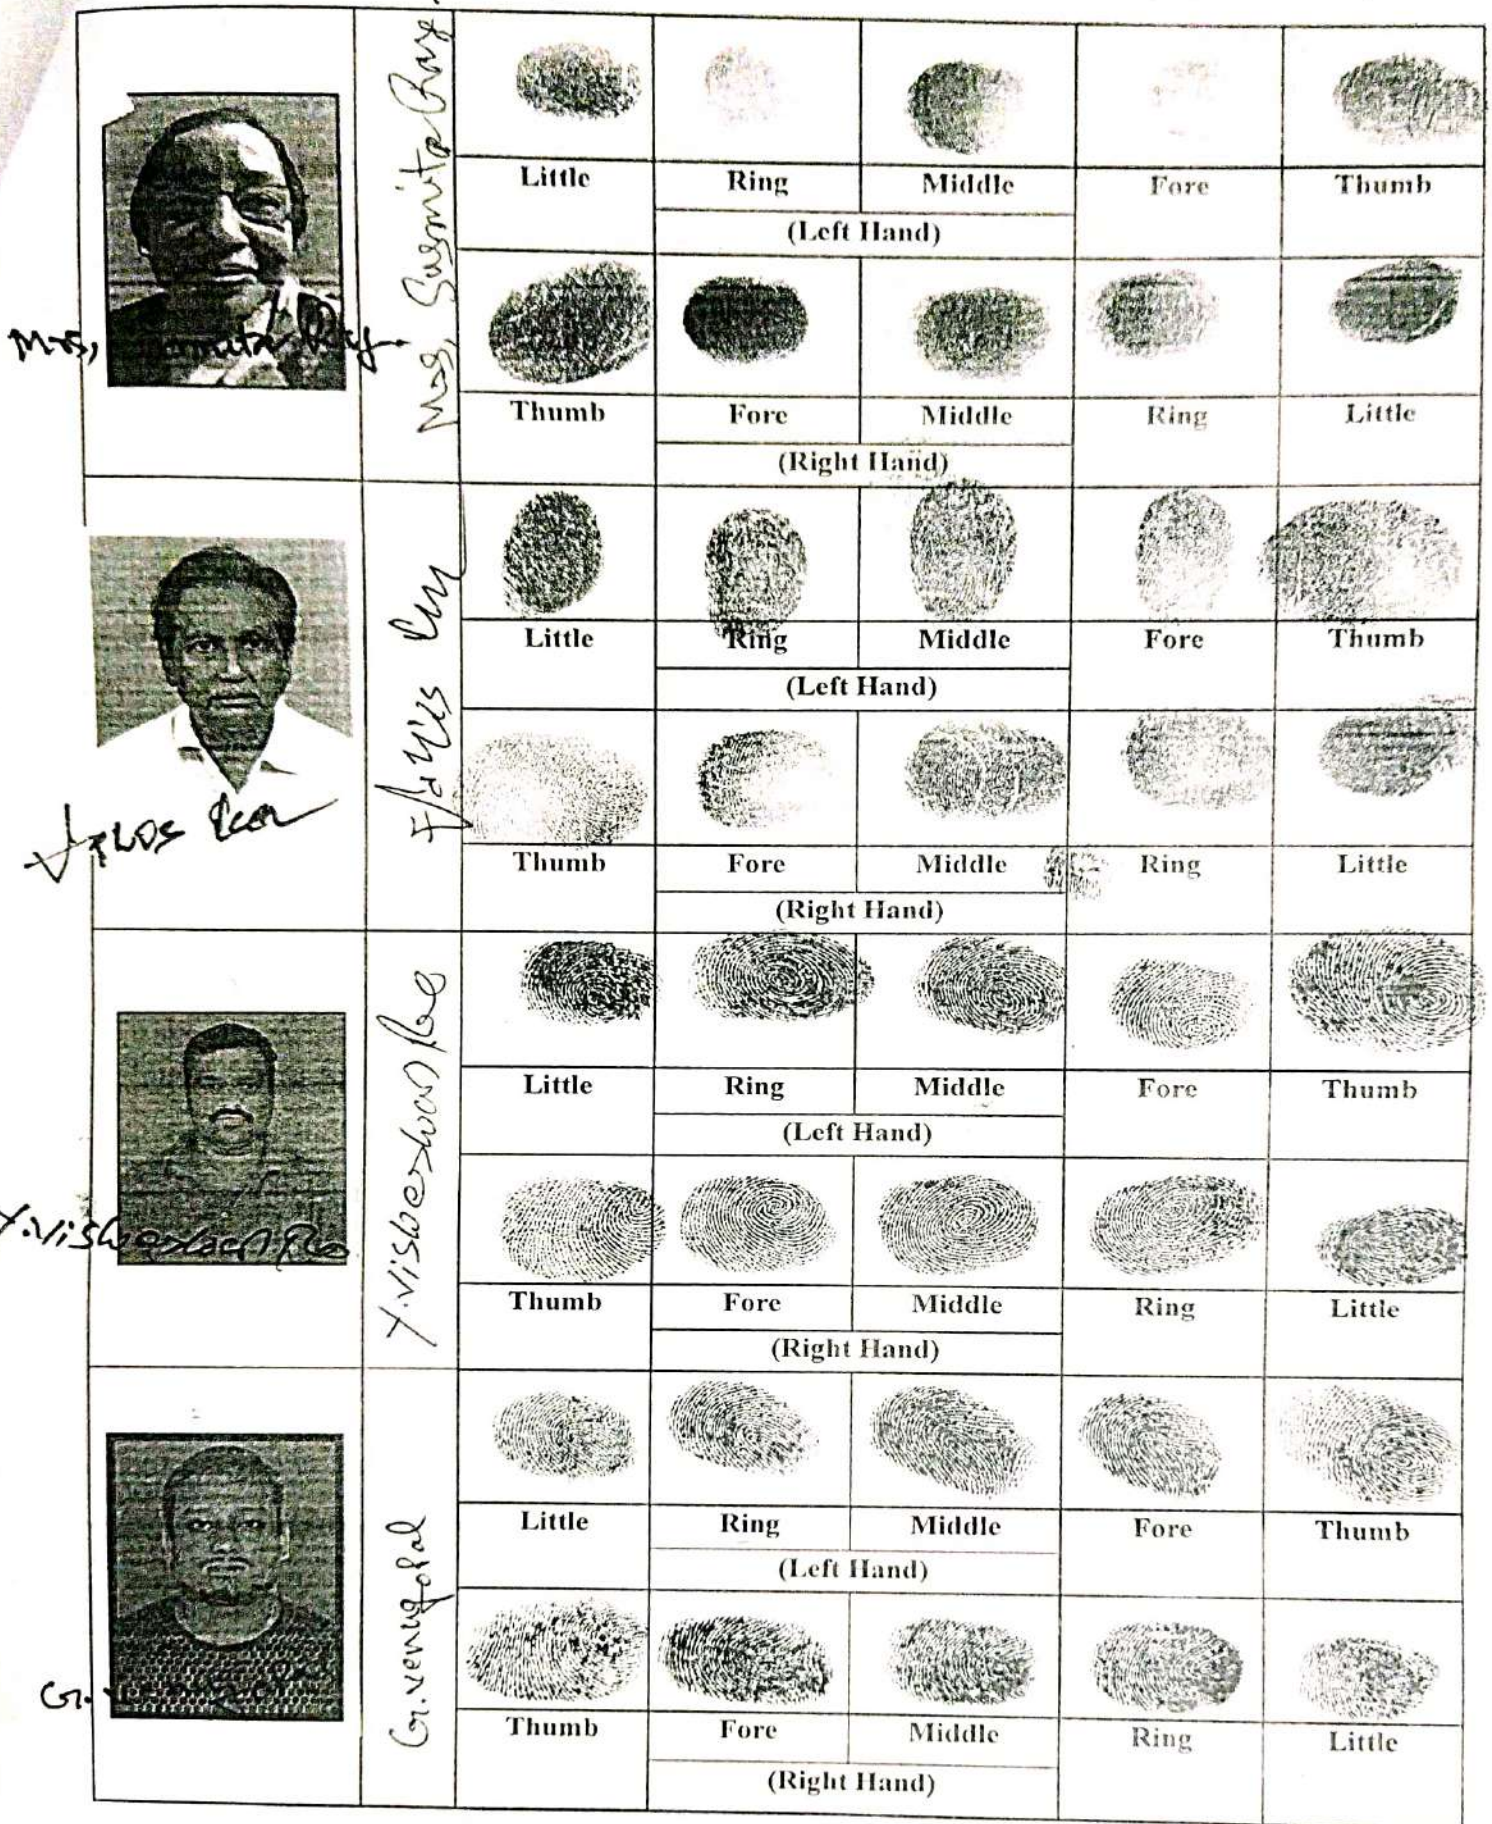 Mrs, Susmita Ray
Mrs,
Little Ring Middle Fore Thumb
(Left Hand)
Thumb Fore Middle Ring Little
(Right Hand)
Little Ring Middle Fore Thumb
(Left Hand)
Thumb Fore Middle Ring Little
(Right Hand)
Y.Visweswar Rao
Y.Visweswar Rao
Little Ring Middle Fore Thumb
(Left Hand)
Thumb Fore Middle Ring Little
(Right Hand)
G.venugopal
G.
Little Ring Middle Fore Thumb
(Left Hand)
Thumb Fore Middle Ring Little
(Right Hand)